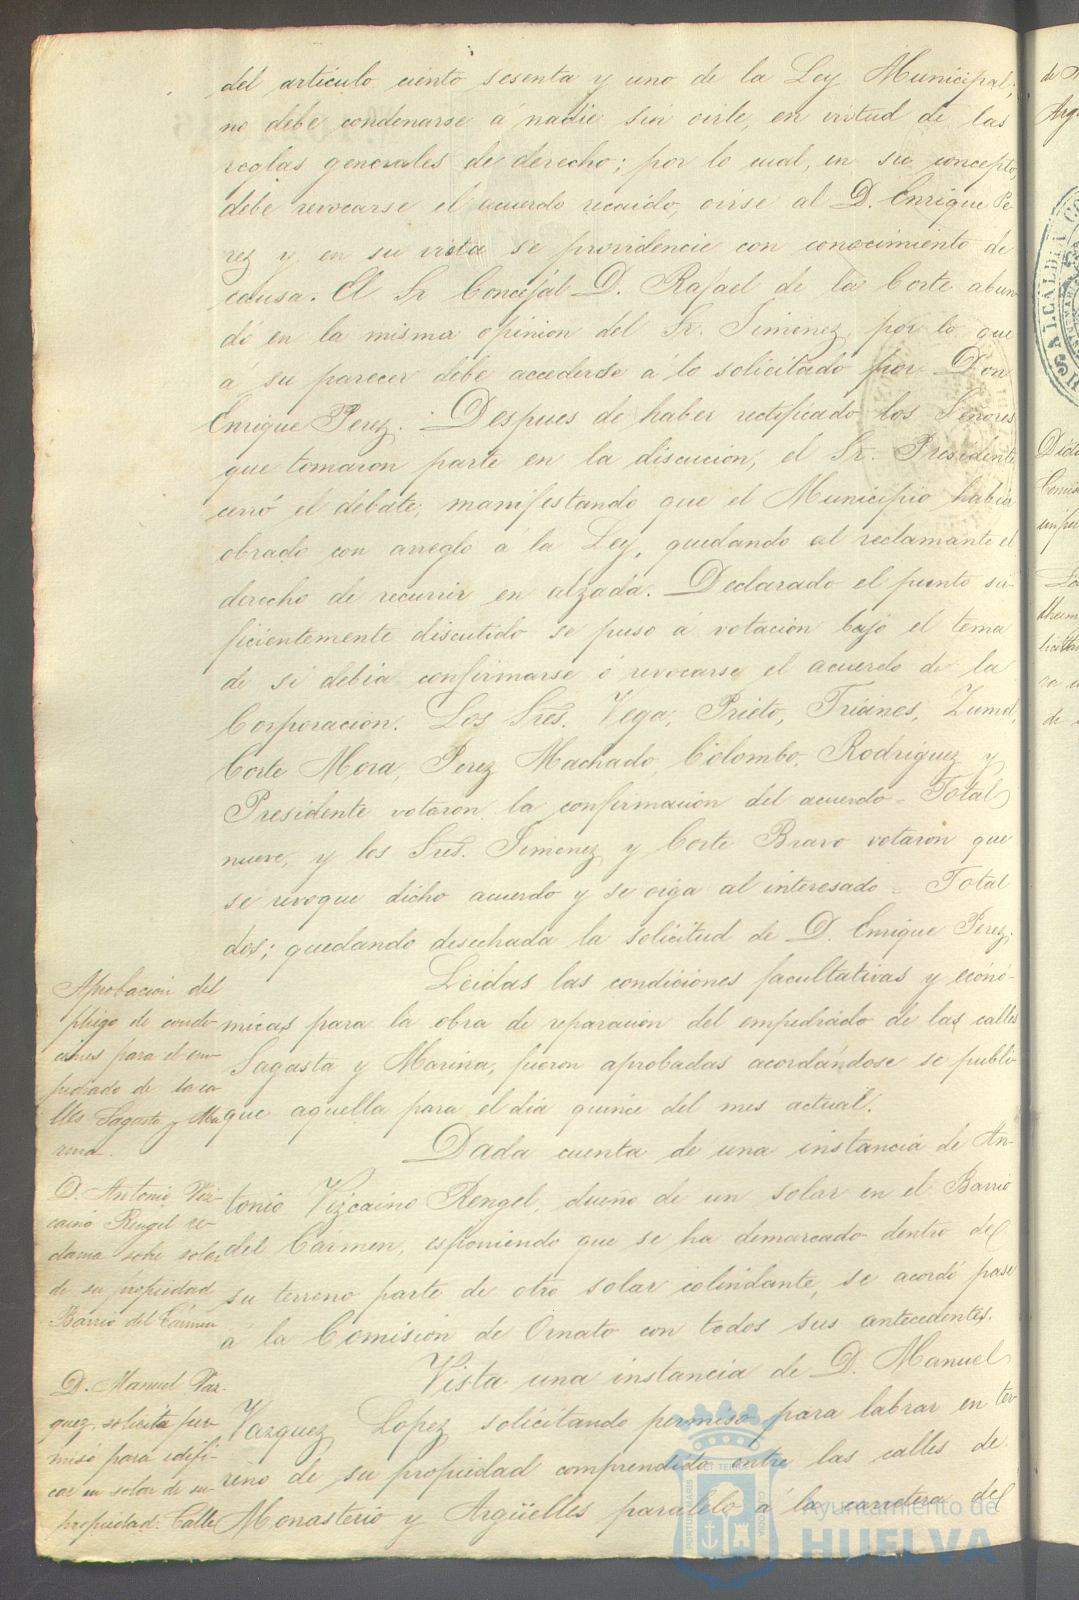 del artículo ciento sesenta y uno de la Ley Municipal;
no debe condenarse á nadie sin oirle, en virtud de las
reglas generales de derecho; por lo cual, en su concepto,
debe revocarse el acuerdo recaido, oirse al D. Enrique Pe-
rez y en su vista se providencie con conocimiento de
causa. El Sr. Concejal D. Rafael de la Corte abun-
dó en la misma opinion del Sr. Jimenez, por lo que
á su parecer debe accederse á lo solicitado por Don
Enrique Perez. Despues de haber rectificado los Señores
que tomaron parte en la discucion, el Sr. Presidente
cerró el debate, manifestando que el Municipio habia
obrado con arreglo á la Ley, quedando al reclamante el
derecho de recurrir en alzada. Declarado el punto su-
ficientemente discutido se puso á votacion bajo el tema
de si debia confirmarse ó revocarse el acuerdo de la
Corporacion. Los Sres. Vega, Prieto, Trianes, Zumel,
Corte Mora, Perez Machado, Colombo, Rodriguez y
Presidente votaron la confirmacion del acuerdo = Total
nueve, y los Sres. Jimenez y Corte Bravo votaron que
se revoque dicho acuerdo y se oiga al interesado = Total
dos; quedando desechada la solicitud de D. Enrique Perez.
Aprobacion del
pliego de condi-
ciones para el em-
pedrado de la ca-
lles Sagasta y Ma-
rina.
Leidas las condiciones facultativas y econó-
micas para la obra de reparacion del empedrado de las calles
Sagasta y Marina, fueron aprobadas acordándose se publi-
que aquella para el dia quince del mes actual.
D. Antonio Viz-
caino Rengel re-
clama sobre solar
de su propiedad
Barrio del Cármen
Dada cuenta de una instancia de An-
tonio Vizcaino Rengel, dueño de un solar en el Barrio
del Cármen, esponiendo que se ha demarcado dentro de
su terreno parte de otro solar colindante, se acordó pase
a la Comision de Ornato con todos sus antecedentes.
D. Manuel Vaz-
quez, solicita per-
miso para edifi-
car en solar de su
propiedad. Calle
Vista una instancia de D. Manuel
Vazquez Lopez solicitando permiso para labrar en ter-
reno de su propiedad comprendido entre las calles de
Monasterio y Argüelles paralelo á la carretera del
Ayuntamiento de
HUELVA